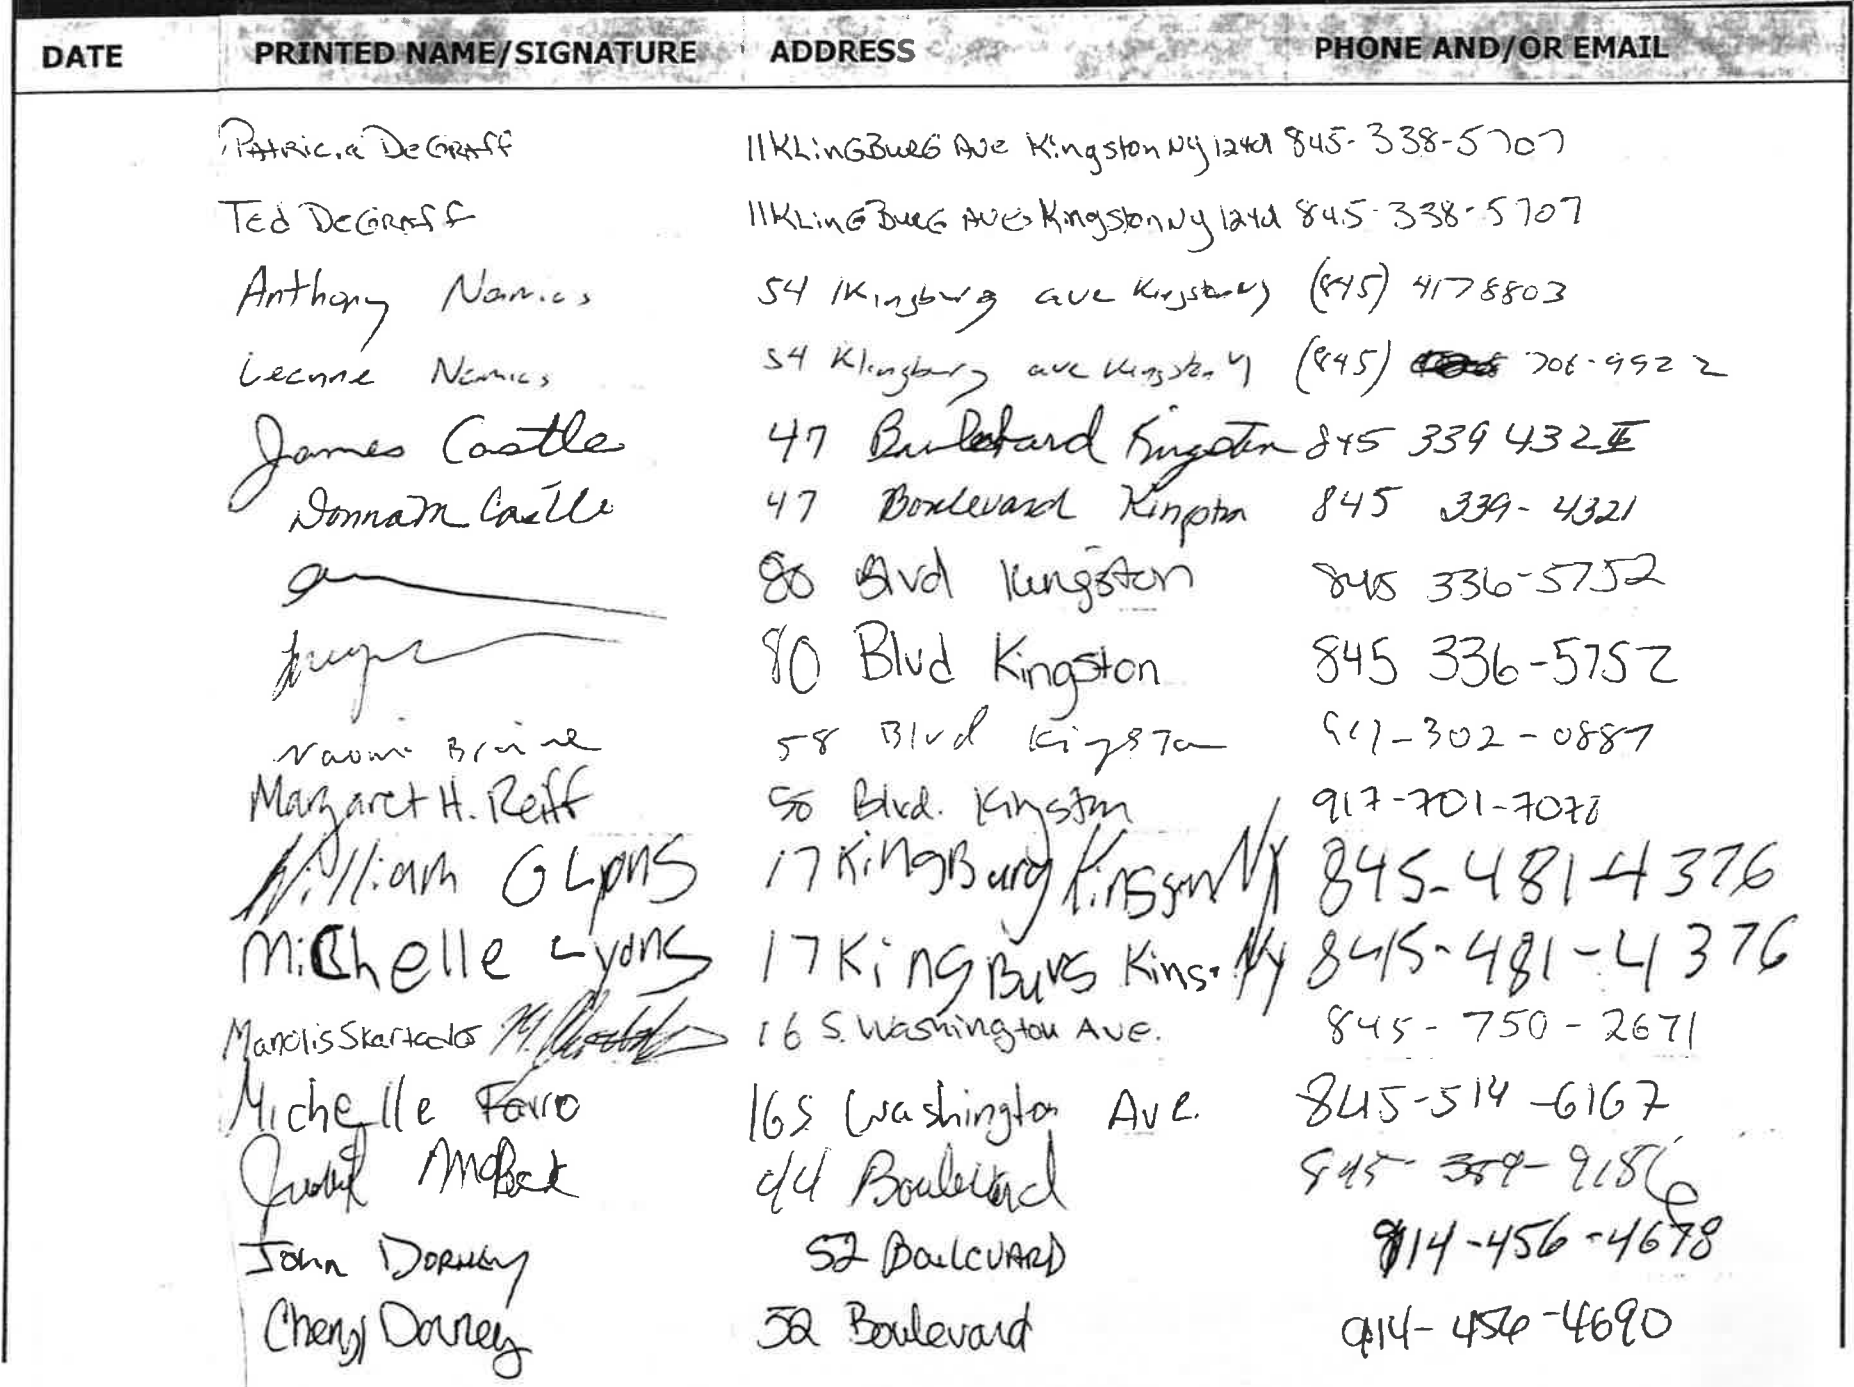 DATE PRINTED NAME/SIGNATURE ADDRESS PHONE AND/OR EMAIL
Patricia DeGraff 11 KLinGBurG Ave Kingston NY 12401 845-338-5707
Ted DeGraff 11 KLinGBurG Ave Kingston NY 12401 845-338-5707
Anthony 54 Klingburg ave Kingston NY (845) 4178803
Leanne 54 Klingburg ave Kingston NY (845) 706-9922
James Castle 47 Boulevard Kingston 845 339 432
Donna M Castle 47 Boulevard Kingston 845 339-4321
80 Blvd Kingston 845 336-5752
80 Blvd Kingston 845 336-5752
Naomi 58 Blvd Kingston 917-302-0887
Margaret H. Reiff 58 Blvd. Kingston 917-701-7078
William G Lyons 17 KingBurg NY 845-481-4376
Michelle Lyons 17 KingBurg Kings. NY 845-481-4376
Manolis 16 S. Washington Ave. 845-750-2671
Michelle Farro 16 S Washington Ave. 845-514-6167
44 Boulevard 845-389-9186
John Dorney 52 Boulevard 914-456-4678
Cheryl Dorney 52 Boulevard 914-456-4690